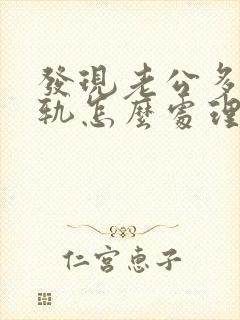 發現老公多
軌怎麼處理
仁宮惠子